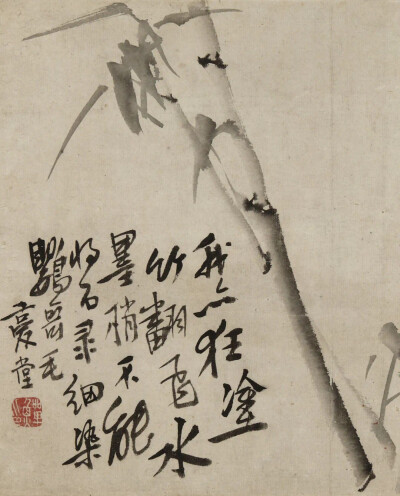 我亦狂塗
竹翻水
墨梢不能
將石录細染
鸚哥毛
复堂